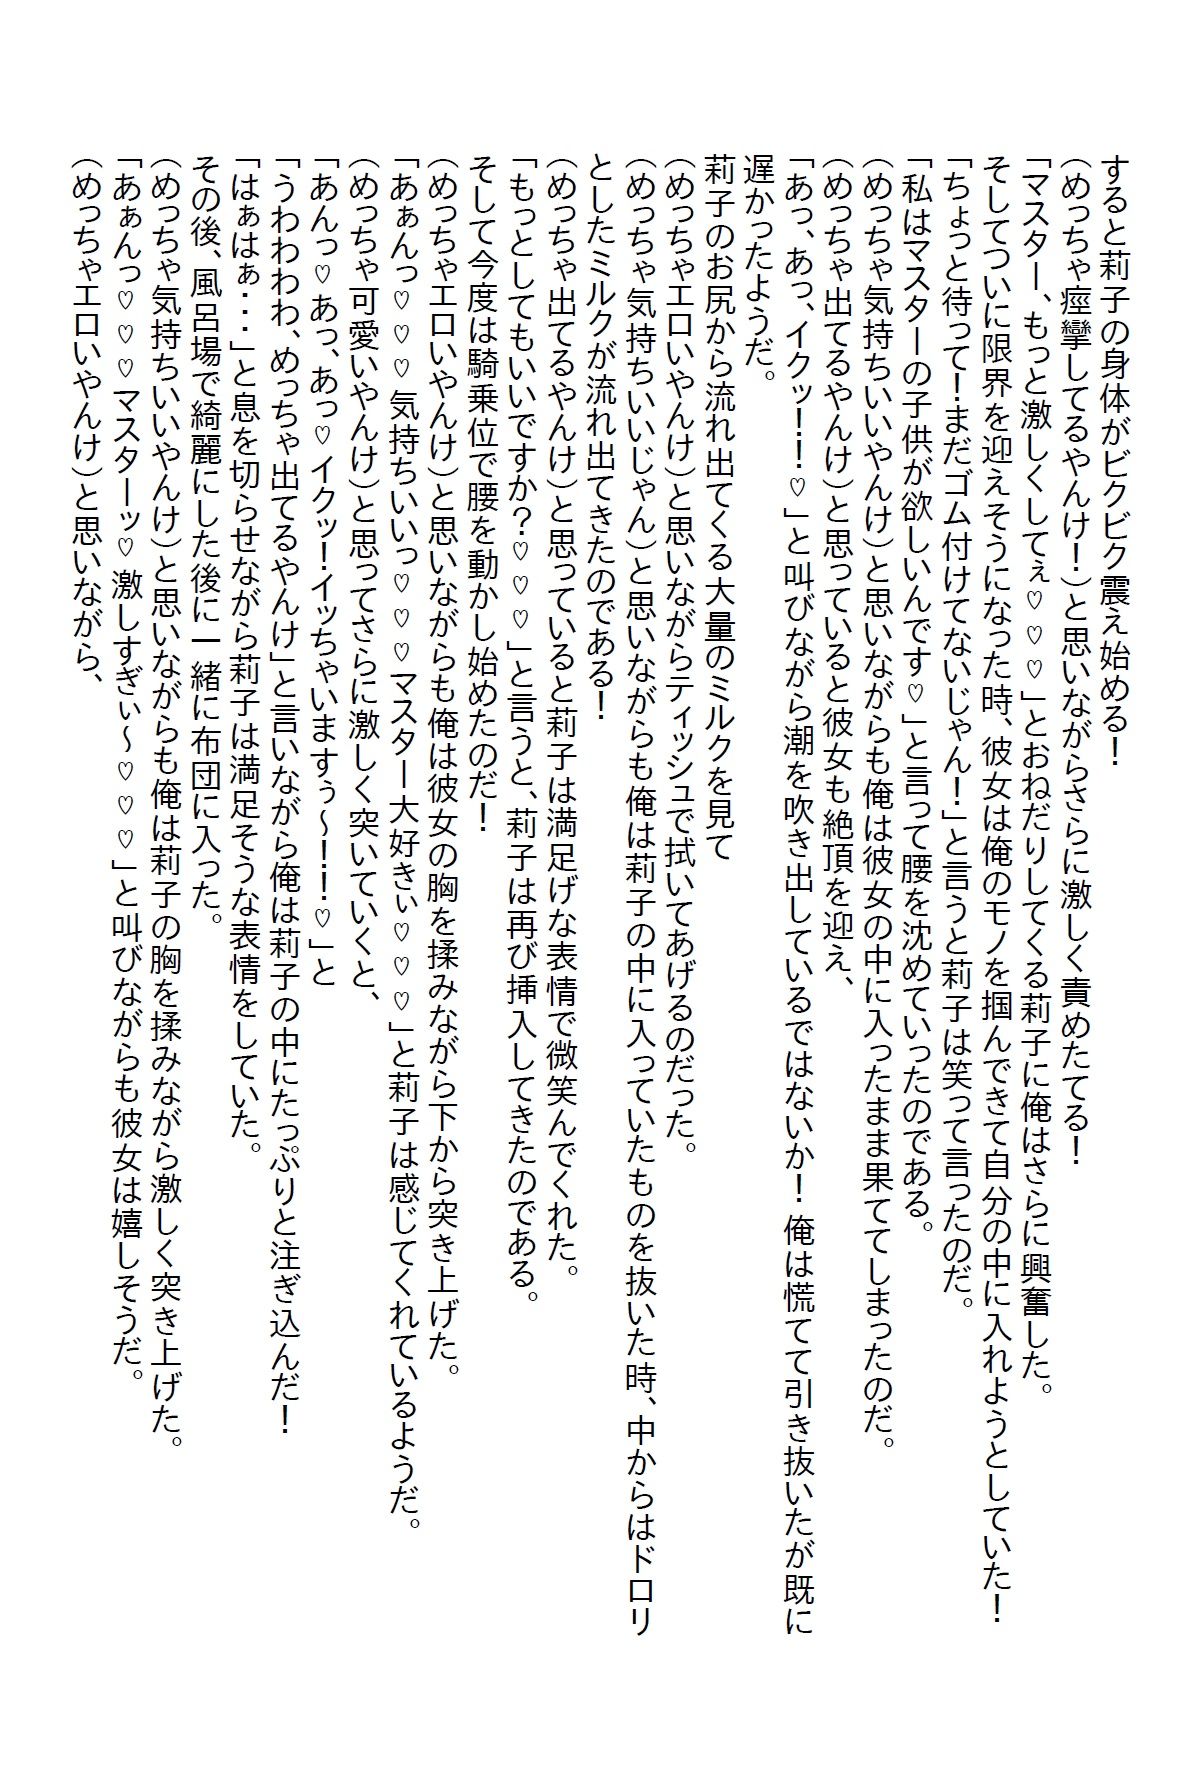 すると莉子の身体がビクビク震え始める！
（めっちゃ痙攣してるやんけ！）と思いながらさらに激しく責めたてる！
「マスター、もっと激しくしてぇ♡♡♡」とおねだりしてくる莉子に俺はさらに興奮した。
そしてついに限界を迎えそうになった時、彼女は俺のモノを掴んできて自分の中に入れようとしていた！
「ちょっと待って！まだゴム付けてないじゃん！」と言うと莉子は笑って言ったのだ。
「私はマスターの子供が欲しいんです♡」と言って腰を沈めていったのである。
（めっちゃ気持ちいいやんけ）と思いながらも俺は彼女の中に入ったまま果ててしまったのだ。
（めっちゃ出てるやんけ）と思っていると彼女も絶頂を迎え、
「あっ、あっ、イクッ！！♡」と叫びながら潮を吹き出しているではないか！俺は慌てて引き抜いたが既に
遅かったようだ。
莉子のお尻から流れ出てくる大量のミルクを見て
（めっちゃエロいやんけ）と思いながらティッシュで拭いてあげるのだった。
（めっちゃ気持ちいいじゃん）と思いながらも俺は莉子の中に入っていたものを抜いた時、中からはドロリ
としたミルクが流れ出てきたのである！
（めっちゃ出てるやんけ）と思っていると莉子は満足げな表情で微笑んでくれた。
「もっとしてもいいですか？♡♡♡」と言うと、莉子は再び挿入してきたのである。
そして今度は騎乗位で腰を動かし始めたのだ！
（めっちゃエロいやんけ）と思いながらも俺は彼女の胸を揉みながら下から突き上げた。
「あぁんっ♡♡♡気持ちいいっ♡♡♡マスター大好きぃ♡♡♡」と莉子は感じてくれているようだ。
（めっちゃ可愛いやんけ）と思ってさらに激しく突いていくと、
「あんっ♡あっ、あっ♡イクッ！イッちゃいますぅ～！！♡」と
「うわわわわ、めっちゃ出てるやんけ」と言いながら俺は莉子の中にたっぷりと注ぎ込んだ！
「はぁはぁ・・・」と息を切らせながら莉子は満足そうな表情をしていた。
その後、風呂場で綺麗にした後に一緒に布団に入った。
（めっちゃ気持ちいいやんけ）と思いながらも俺は莉子の胸を揉みながら激しく突き上げた。
「あぁんっ♡♡♡マスターッ♡激しすぎぃ～♡♡♡」と叫びながらも彼女は嬉しそうだ。
（めっちゃエロいやんけ）と思いながら、